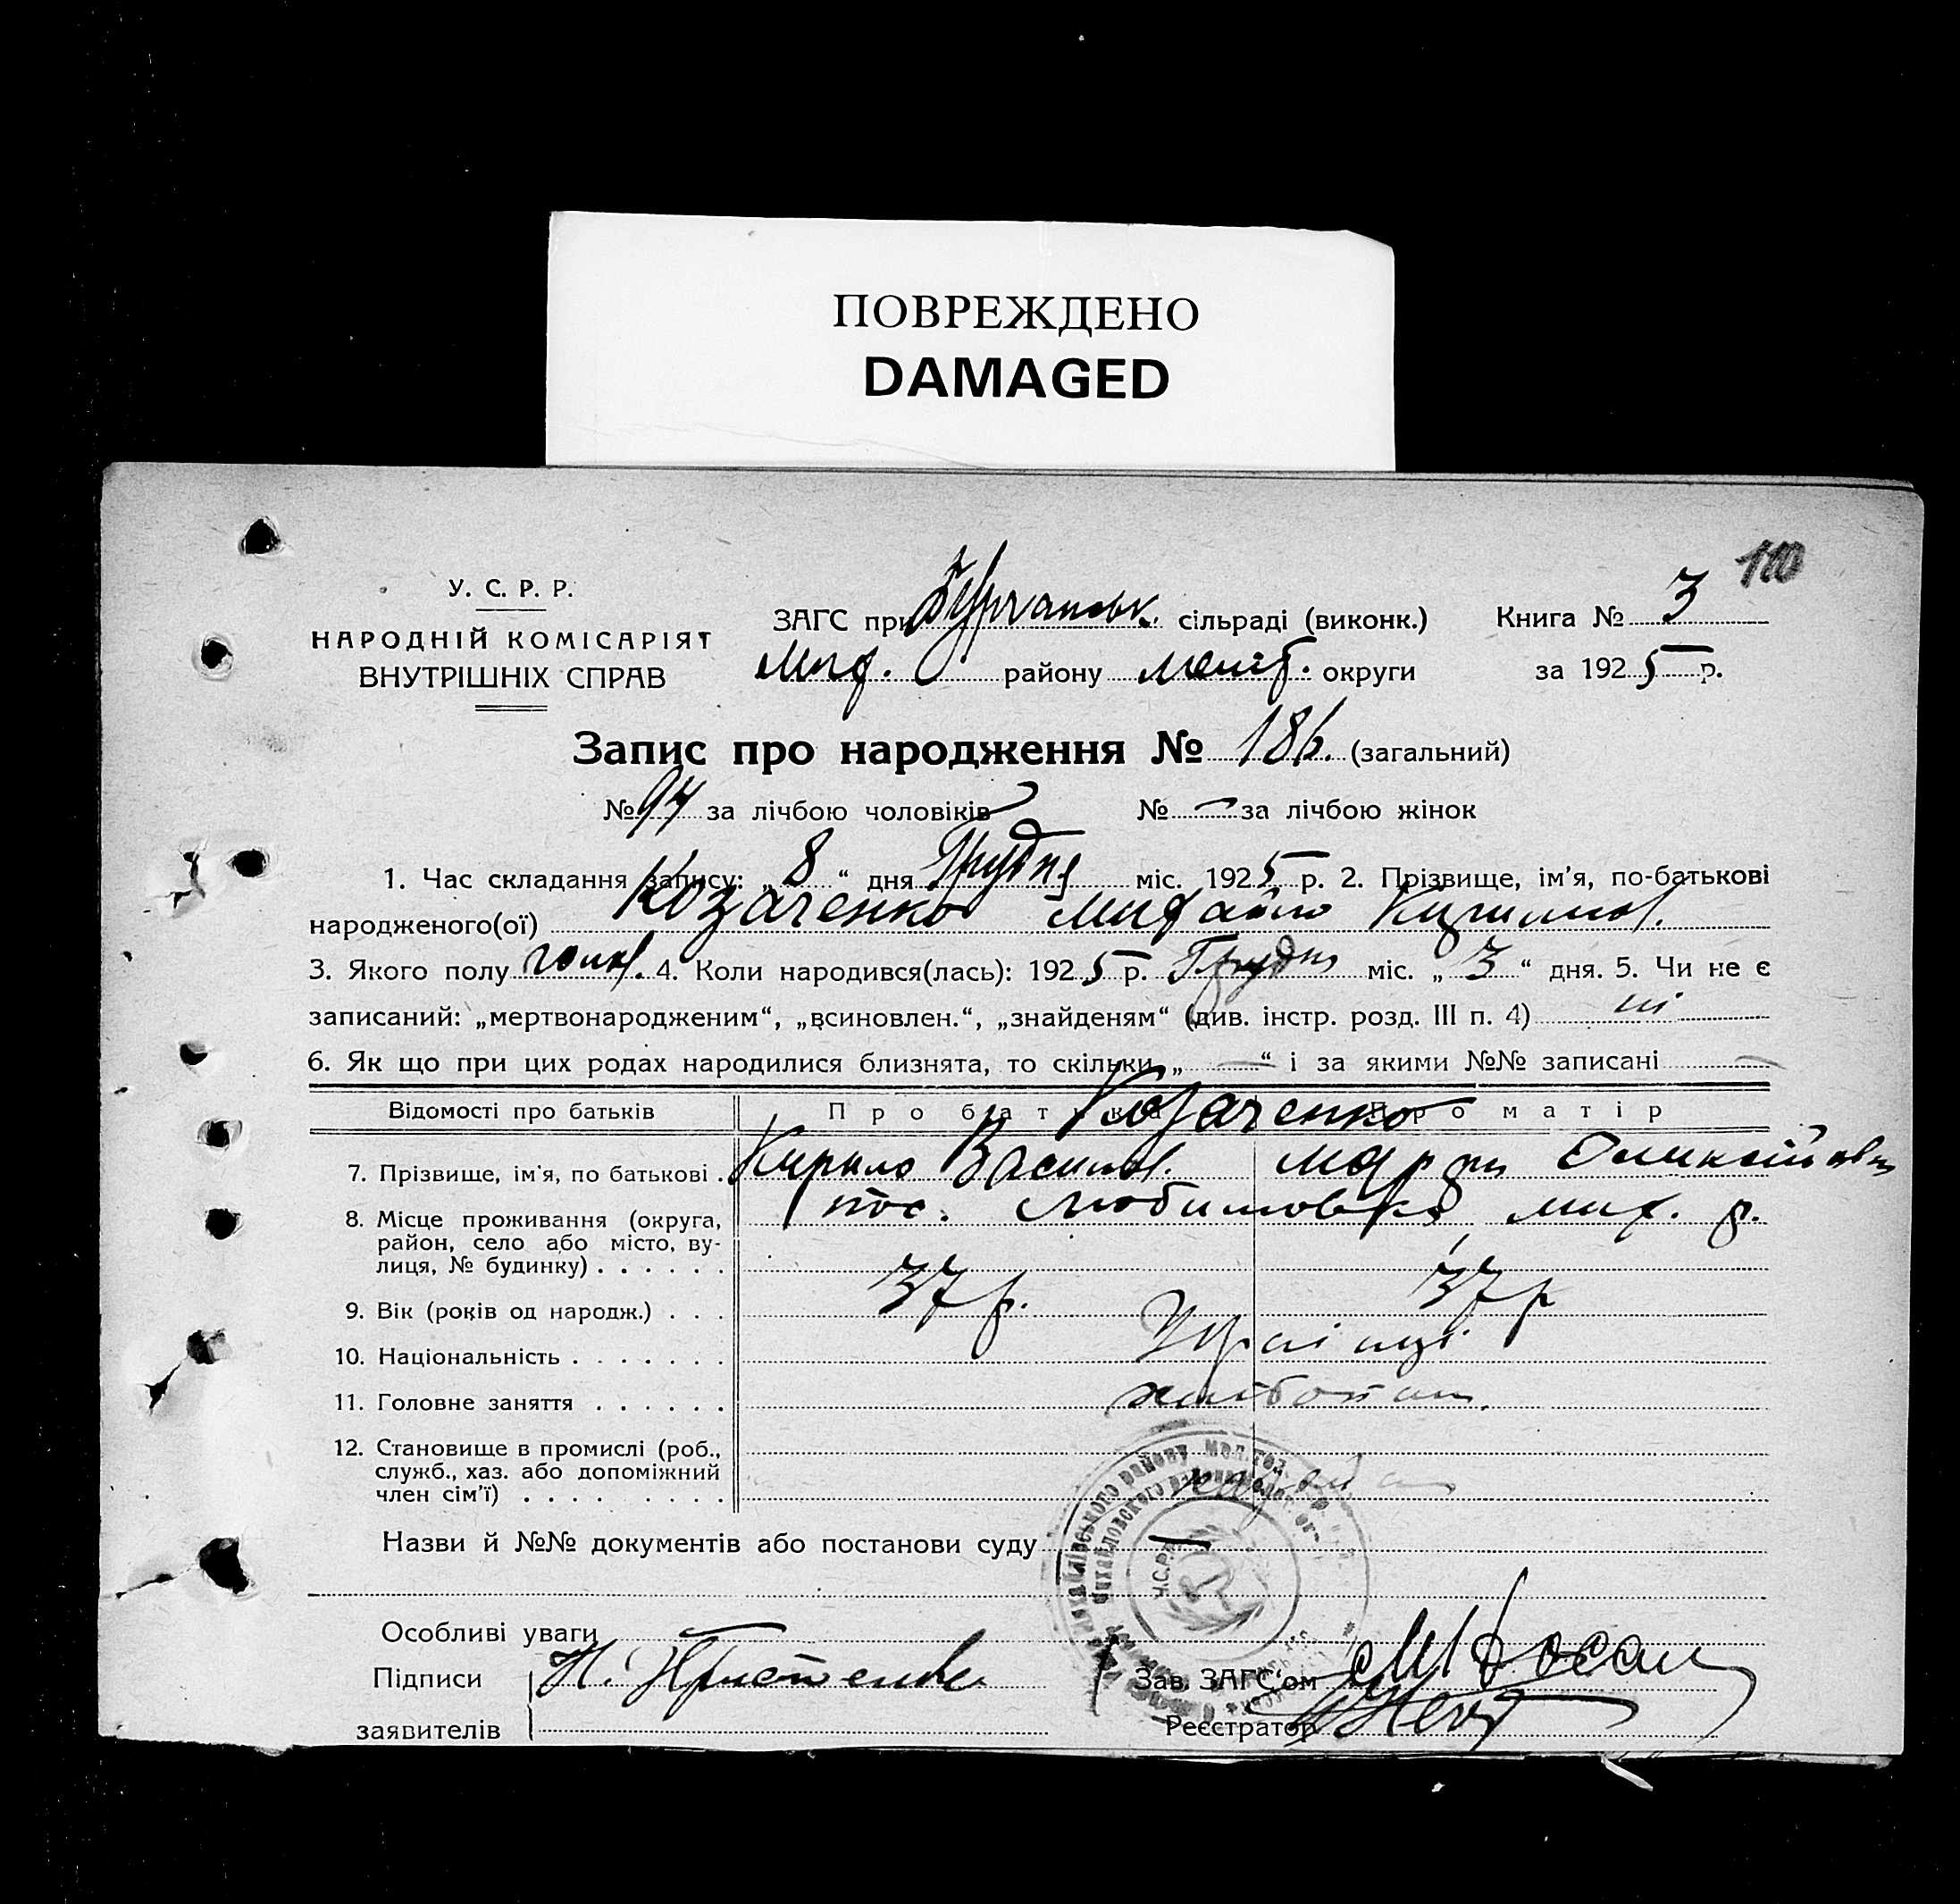 ПОВРЕЖДЕНО
DAMAGED
110
У. С. Р. Р.
НАРОДНІЙ КОМІСАРІЯТ
ВНУТРІШНІХ СПРАВ
ЗАГС при Бурчанськ. сільраді (виконк.)
Мих. району Меліт. округи
Книга № 3
за 1925 р.
Запис про народження № 186. (загальний)
№ 94 за лічбою чоловіків № — за лічбою жінок
1. Час складання запису: „ 8 “ дня Грудня міс. 1925 р. 2. Прізвище, ім'я, по-батькові
народженого(ої) Козаченко Михайло Кирилов.
3. Якого полу чолов. 4. Коли народився(лась): 1925 р. Грудня міс. „ 3 “ дня. 5. Чи не є
записаний: „мертвонародженим“, „всиновлен.“, „знайденям“ (див. інстр. розд. III п. 4) ні
6. Як що при цих родах народилися близнята, то скільки „ — “ і за якими №№ записані —
Відомості про батьків Про батька Про матір
Козаченко
7. Прізвище, ім'я, по батькові . Кирило Васильов. Марфа Олексійовна
8. Місце проживання (округа, район, село або місто, вулиця, № будинку) . . . . . . пос. Любимовка мих. р.
9. Вік (років од народж.) . . . 37 р. 37 р
10. Національність . . . . . . . Українці
11. Головне заняття . . . . . . хлібопаш.
12. Становище в промислі (роб., служб., хаз. або допоміжний член сім'ї) . . . . . . . . .
Назви й №№ документів або постанови суду —
У.С.Р.Р.
Особливі уваги
Підписи
заявителів
Зав. ЗАГС'ом
Реєстратор